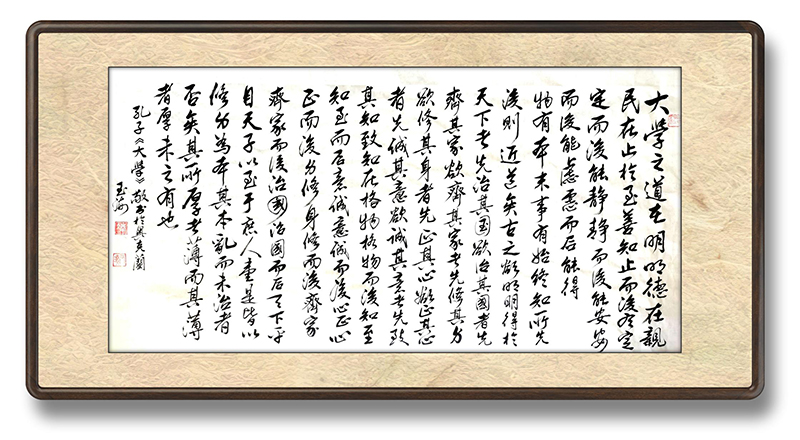 大學之道在明明德在親
民在止於至善知止而後有定
定而後能静静而後能安安
而後能慮慮而后能得
物有本末事有始終知所先
後則近道矣古之欲明明得於
天下者先治其国欲治其國者先
齊其家欲齊其家者先修其身
欲修其身者先正其心欲正其心
者先誠其意欲誠其意者先致
其知致知在格物格物而後知至
知至而后意诚意诚而後心正心
正而後身修身修而後齊家
齊家而後治國治国而后天下平
自天子以至于庶人壹是皆以
修身為本其本乱而末治者
否矣其所厚者薄而其薄
者厚未之有也
孔子《大學》敬书於奥克蘭